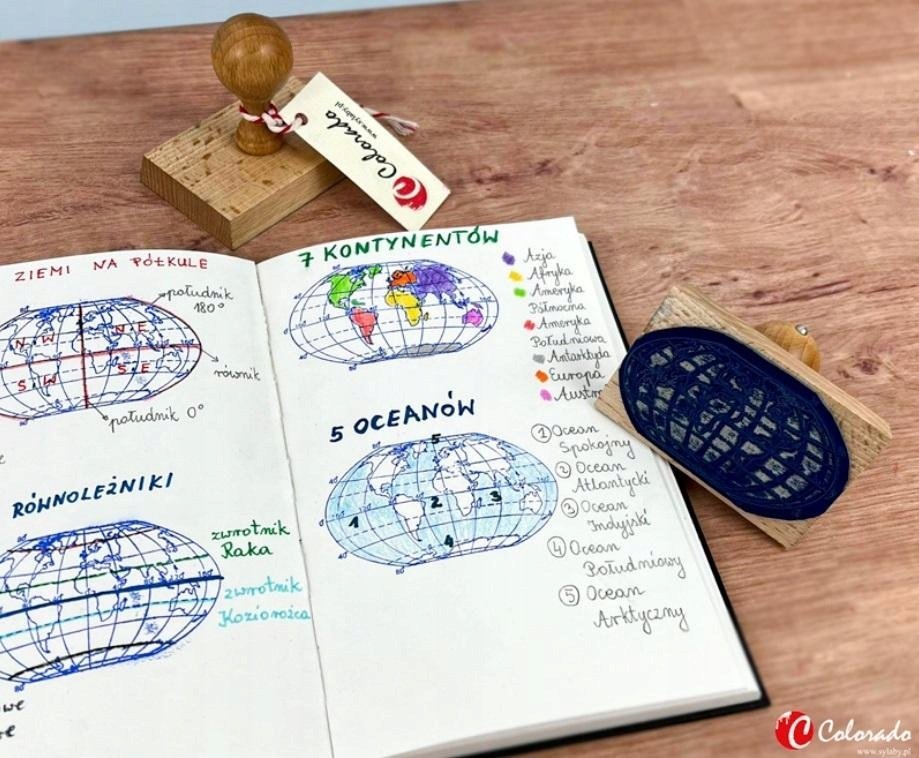 Colorado
www.sylaby.pl
ZIEMI NA PÓŁKULE
południk
180°
N W
N E
S W
S E
równik
południk 0°
RÓWNOLEŻNIKI
zwrotnik
Raka
zwrotnik
Koziorożca
we
7 KONTYNENTÓW
Azja
Afryka
Ameryka
Północna
Ameryka
Południowa
Antarktyda
Europa
Austr
5 OCEANÓW
5
1
2
3
4
① Ocean
Spokojny
② Ocean
Atlantycki
③ Ocean
Indyjski
④ Ocean
Południowy
⑤ Ocean
Arktyczny
Colorado
www.sylaby.pl